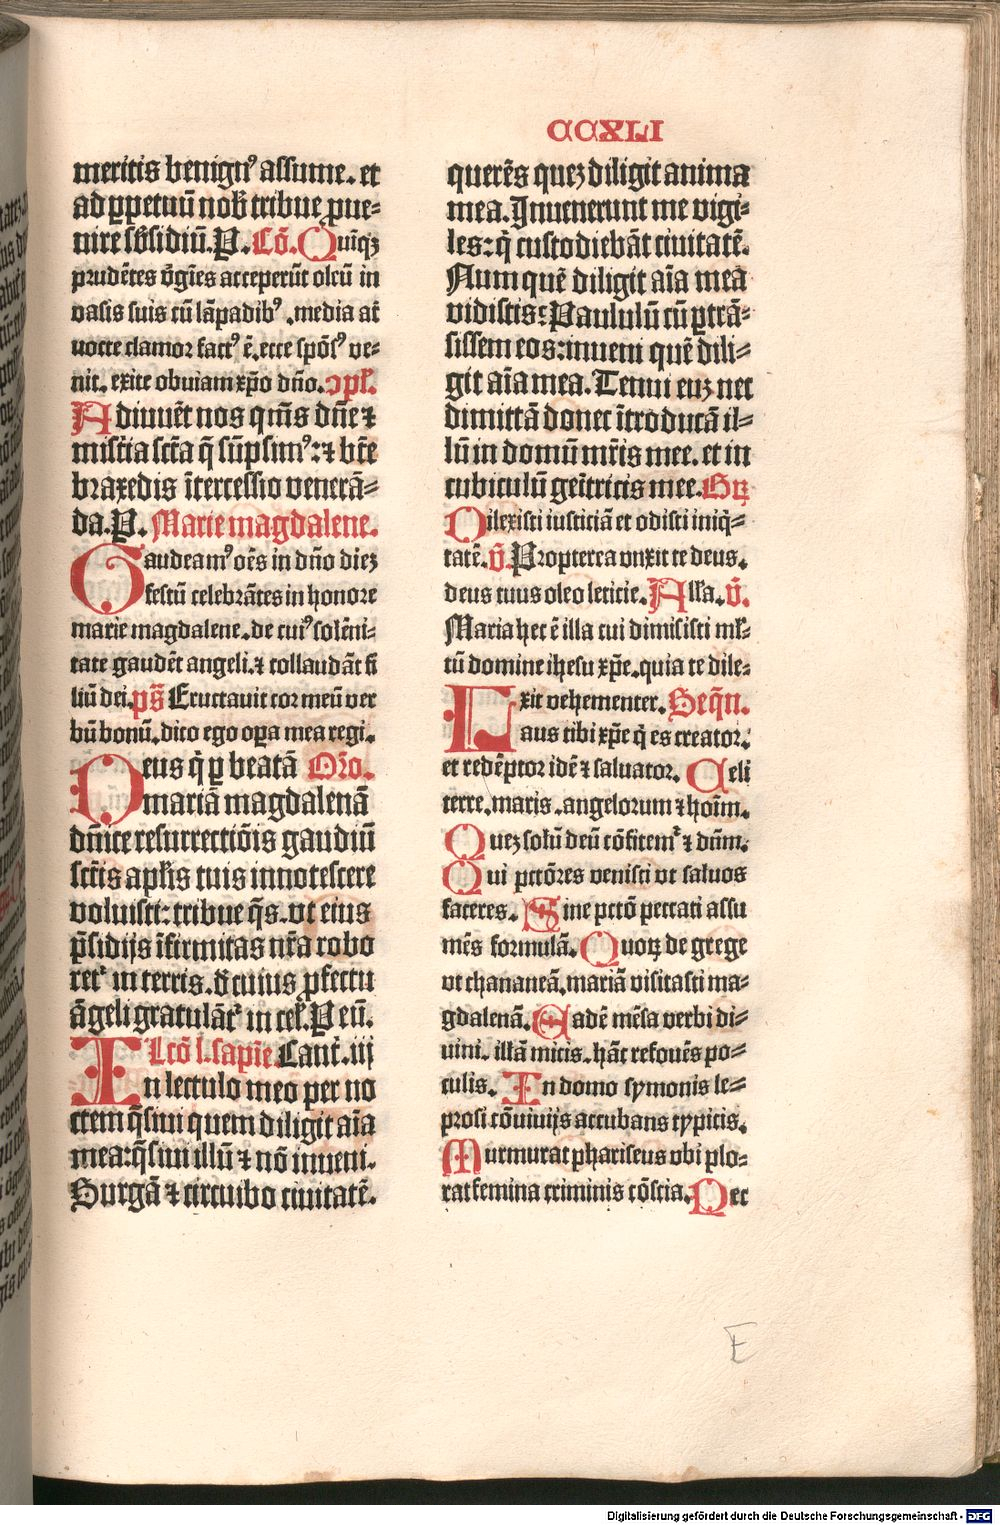 CCXLI
meritis benignꝰ assume. et
ad ꝑpetuū nob̄ tribue ꝓue⸗
nire sb̄sidiū. P. Cō. Quīqꝫ
prudētes v̄gīes acceperūt oleū in
vasis suis cū lāpadibꝰ. media aūt
nocte clamor factꝰ ē. ecce spōsꝰ ve⸗
nit. exite obuiam xp̄o dn̄o. ↄpl̄.
Adiuuēt nos qm̄s dn̄e ⁊
mist̄ia sct̄a q̄ sūpsimꝰ: ⁊ btē
braxedis ītercessio venerā⸗
da. P. Marie magdalene.
Gaudeamꝰ oēs in dn̄o diēꝫ
festū celebrātes in honore
marie magdalene. de cuiꝰ solēni⸗
tate gaudēt angeli. ⁊ collaudāt fi
liū dei. ps̄ Eructauit cor meū ver
bū bonū. dico ego oꝑa mea regi.
Deus q̄ ꝑ beatā Oro.
mariā magdalenā
dn̄ice resurrectiōis gaudiū
sct̄is apl̄is tuis innotescere
voluisti: tribue q̄s. vt eius
p̄sidijs īfirmitas nr̄a robo
ret᷑ in terris. d̄ cuius ꝓfectu
āgeli gratulāt᷑ in cel̄. P eū.
Lcō l. sapīe. Cant̄. iij
In lectulo meo per no
ctem q̄siui quem diligit aīa
mea: q̄siui illū ⁊ nō inueni.
Surgā ⁊ circuibo ciuitatē.
querēs queꝫ diligit anima
mea. Inuenerunt me vigi⸗
les: q̄ custodiebāt ciuitatē.
Num quē diligit aīa mea
vidistis: Paululū cū ꝑtrā⸗
sissem eos: inueni quē dili⸗
git aīa mea. Tenui euꝫ nec
dimittā donec ītroducā il⸗
lū in domū mr̄is mee. et in
cubiculū geītricis mee. Gꝝ
Dilexisti iusticiā et odisti iniq̄⸗
tatē. V̄. Propterea vnxit te deus.
deus tuus oleo leticie. All̄a. V̄.
Maria hec ē illa cui dimisisti ml̄⸗
tū domine ihesu xp̄e. quia te dile⸗
xit vehementer. Seq̄n̄.
Laus tibi xp̄e q̄ es creator:
et redēptor idē ⁊ saluator. Celi
terre. maris. angelorum ⁊ hoīm.
Queꝫ solū deū cōfitem᷑ ⁊ dn̄m.
Qui pctōres venisti vt saluos
faceres. Sine pctō peccati assu
mēs formulā. Quoꝝ de grege
vt chananeā. mariā visitasti ma⸗
gdalenā. Eadē mēsa verbi di⸗
uini. illā micis. hāc refouēs po⸗
culis. In domo symonis le⸗
prosi cōuiuijs accubans typicis.
Murmurat phariseus vbi plo⸗
rat femina criminis cōscia. Pec
E
Digitalisierung gefördert durch die Deutsche Forschungsgemeinschaft - DFG